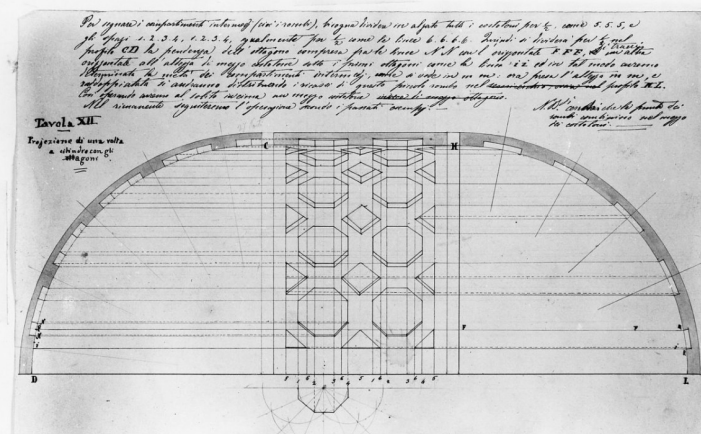 Per segnare i compartimenti intermedj (cioè i rombi), bisogna dividere in alzato tutti i costoloni per ½, come 5. 5. 5, e
gli spazj 1. 2. 3. 4, 1. 2. 3. 4, egualmente per ½ come le linee 6. 6. 6. 6. Quindi si dividerà per ½ nel
profilo CD la pendenza dell'ottagono compresa fra le linee N. N con l'orizzontale F. F. F, ed un'altra
orizzontale all'altezza di mezzo costolone sotto i primi ottagoni come la linea i i ed in tal modo avremo
determinata la metà de' compartimenti intermedj, come si vede in m m: ora presa l'altezza in m, e
raddoppiata si andranno distribuendo i rombi nel profilo H. L.
Così operando avremo al solito
Nel rimanente seguiteremo l'operazione secondo i passati esempj.
N.B. anche che le punte de'
rombi combinino nel mezzo
dei costoloni.
Tavola XII
Projezione di una volta
a cilindro con gli
ottagoni
C H
F F
i i
D L
5 1 6 2 3 6 4 5 1 6 2 3 6 4 5